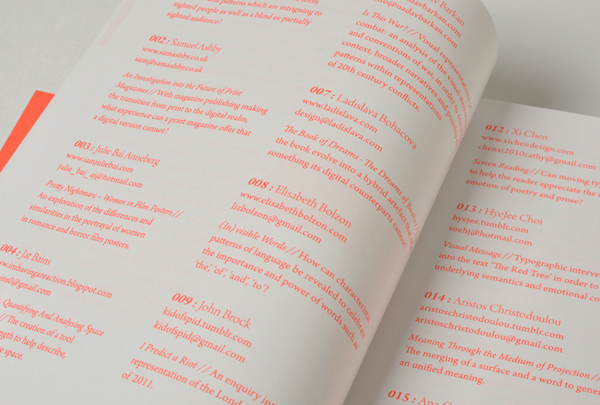 patterns which are intriguing to
sighted people as well as a blind or partially
sighted audience?
002 : Samuel Ashby
www.samashby.co.uk
sam@samashby.co.uk
An Investigation into the Future of Print
Magazines // With magazine publishing making
the transition from print to the digital realm,
what experience can a print magazine offer that
a digital version cannot?
003 : Julie Bai Anneberg
www.iamjuliebai.com
julie_bai_a@hotmail.com
Pretty Nightmare – Women in Film Posters //
An exploration of the differences and
similarities in the portrayal of women
in romance and horror film posters.
004 : Jat Bains
imhavingareaction.blogspot.com
@gmail.com
Quantifying And Analysing Space
// The creation of a tool
length to help describe,
space.
Barkan
@nadavbarkan.com
Is This War? // Visual
combat: an analysis of the visual
and conventions of war, in order
context, broader narratives and
patterns within representations
of 20th century conflicts.
007 : Ladislava Bohacova
www.ladislava.com
design@ladislava.com
The Book of Dreams – The Dreams of
the book evolve into a hybrid artefact
something its digital counterpart cannot?
008 : Elisabeth Bolzon
www.elisabethbolzon.com
lizbolzon@gmail.com
(In) visible Words // How can characteristic
patterns of language be revealed to celebrate
the importance and power of words such as
'the', 'of', and', 'to'?
009 : John Brock
kidofspid.tumblr.com
kidofspid@gmail.com
I Predict a Riot // An enquiry into
representation of the London
of 2011.
012 : Xi Chen
www.xichendesign.com
chenxi2010cathy@gmail.com
Screen Reading // Can moving
to help the reader appreciate the
emotion of poetry and prose?
013 : HyeJee Choi
hyejee.tumblr.com
soehj@hotmail.com
Visual Message // Typographic
into the text 'The Red Tree' in order to
underlying semantics and emotional
014 : Aristos Christodoulou
aristoschristodoulou.tumblr.com
aristoschristodoulou@gmail.com
Meaning Through the Medium of Projection //
The merging of a surface and a word to
an unified meaning.
015 : Ana